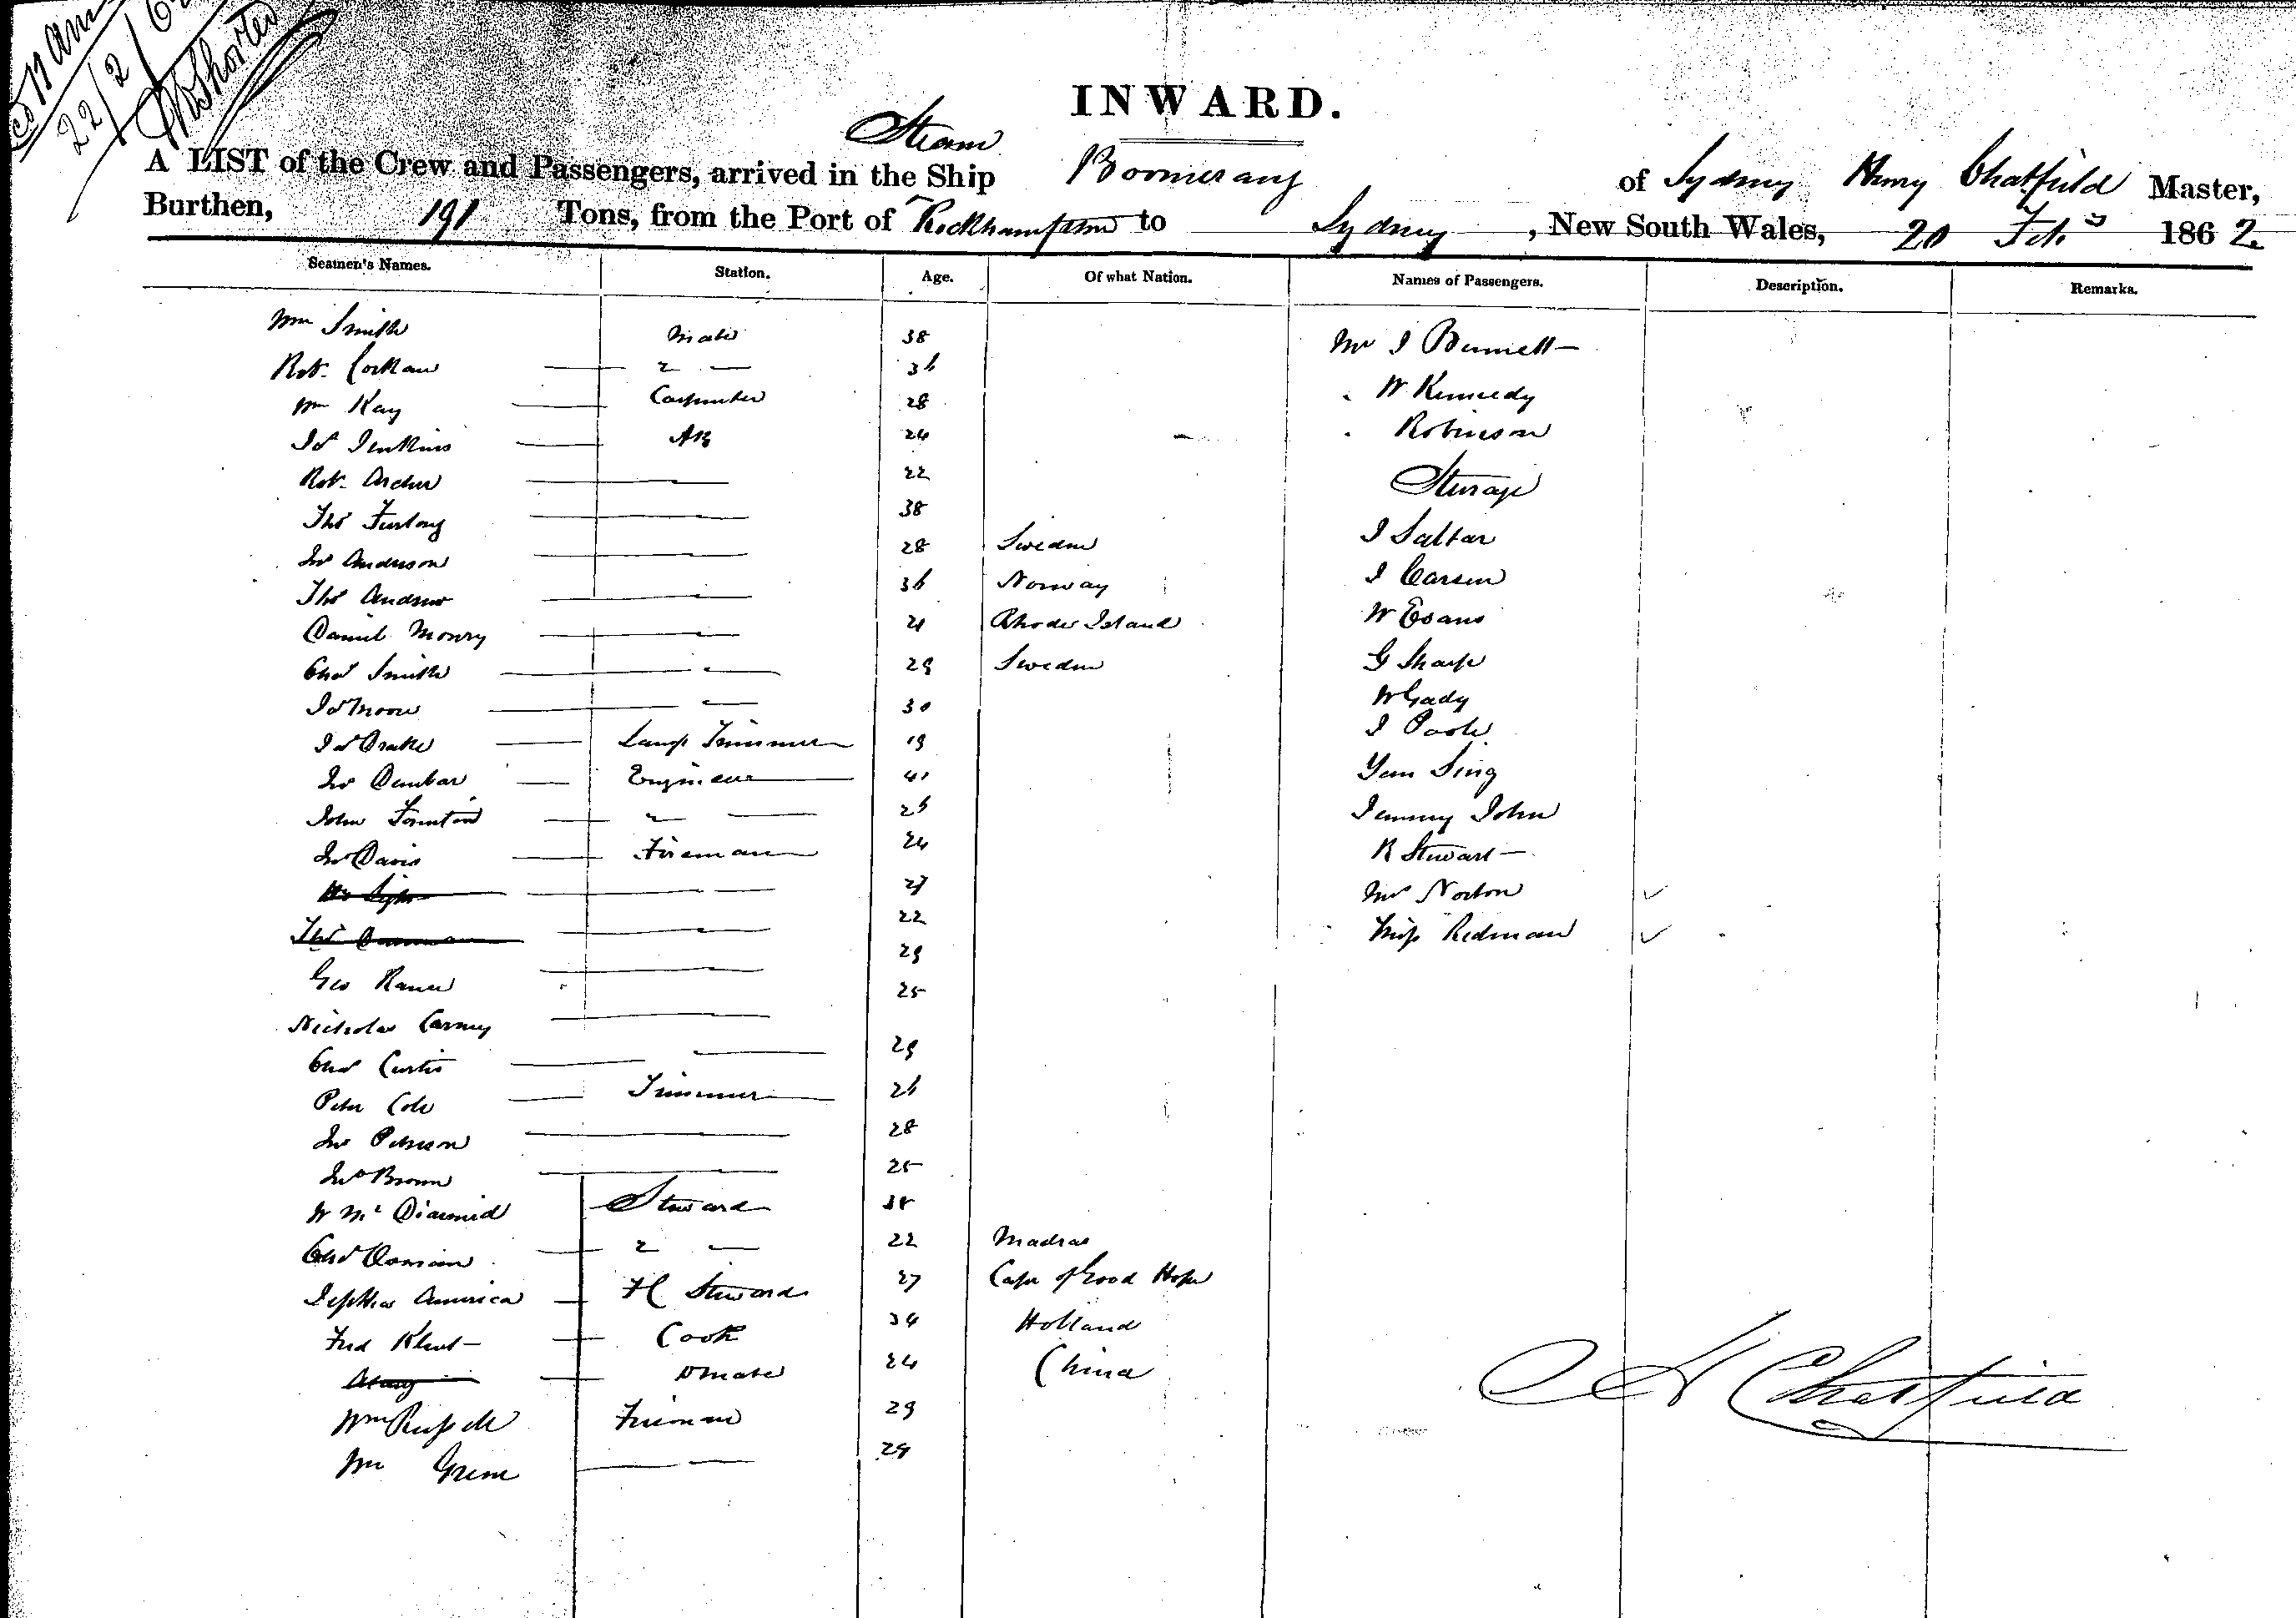 22/2/62
INWARD.
Steam
A LIST of the Crew and Passengers, arrived in the Ship Boomerang of Sydney Henry Chatfield Master,
Burthen, 191 Tons, from the Port of Rockhampton to Sydney, New South Wales, 20 Feby 1862
Seamen's Names. Station. Age. Of what Nation. Names of Passengers. Description. Remarks.
Wm Smith Mate 38 Mr J Bennett
Robt 2 36 W Kennedy
Wm Kay Carpenter 28 Robinson
Js Jenkins AB 24 Steerage
Robt Archer 22 J Saltar
Thos Furlong 38 J Carsen
Jno Anderson 28 Sweden W Evans
Thos Andrew 36 Norway G Sharp
Daniel Mowry 21 Rhode Island W Gady
Chas Smith 29 Sweden J Poole
Js Moore 30 Yum Sing
Js Drake Lamp Trimmer 19 Jemmy John
Jno Dunbar Engineer 41 R Stewart
John 2 26 Mrs Norton
Jno Davis Fireman 24 Miss Redman
27
Thos 22
Geo 29
Nicholas Carney 25
Chas Curtis 29
Peter Cole Trimmer 26
Jno Peterson 28
Jno Brown 25
W McDiarmid Steward 38
Chas 2 22 Madras
Jepthea America F C Steward 27 Cape of Good Hope
Fred Cook 34 Holland
Do mate 24 China
Wm Russell Fireman 29
Wm Green 29
H Chatfield